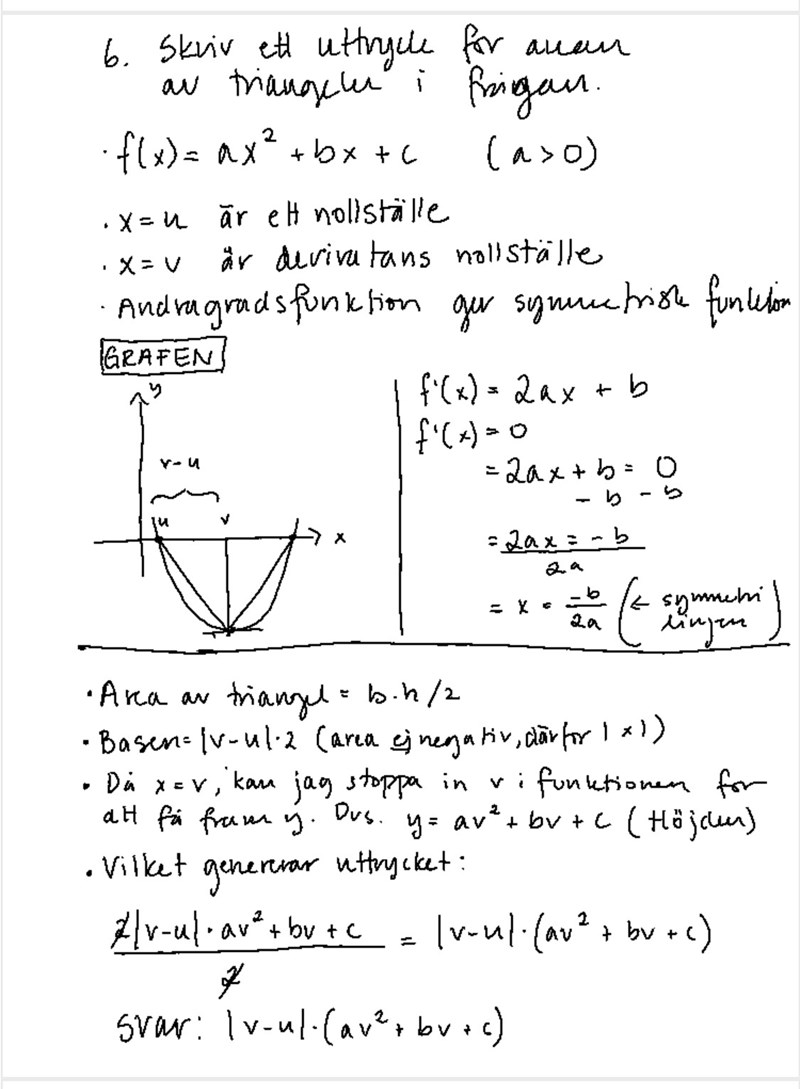 6. Skriv ett uttryck för arean
av triangeln i frågan.
· f(x) = ax² + bx + c (a > 0)
· x = u är ett nollställe
· x = v är derivatans nollställe
· Andragradsfunktion ger symmetrisk funktion
GRAFEN
y
v-u
u v
x
f'(x) = 2ax + b
f'(x) = 0
= 2ax + b = 0
- b - b
= 2ax = - b
2a
= x = -b/2a (← symmetri
linjen)
· Area av triangel = b·h/2
· Basen = |v-u|·2 (area ej negativ, därför |x|)
· Då x = v, kan jag stoppa in v i funktionen för
att få fram y. Dvs. y = av² + bv + c (Höjden)
· Vilket genererar uttrycket:
2|v-u|·av² + bv + c / 2 = |v-u|·(av² + bv + c)
svar: |v-u|·(av² + bv + c)